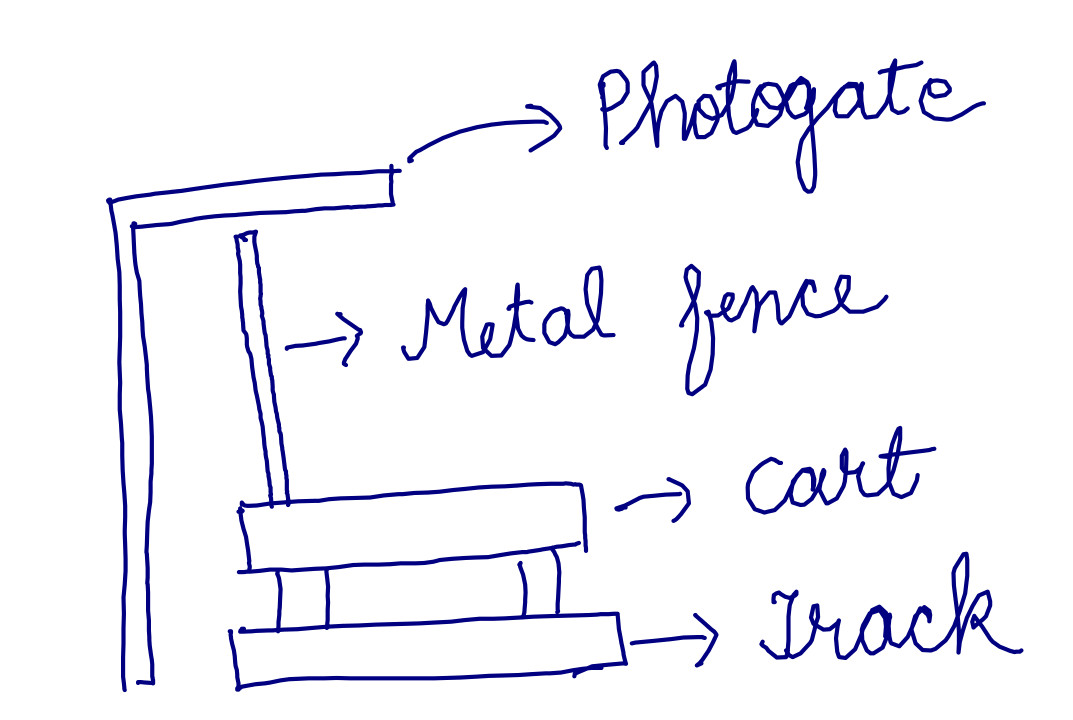 Photogate
Metal fence
Cart
Track